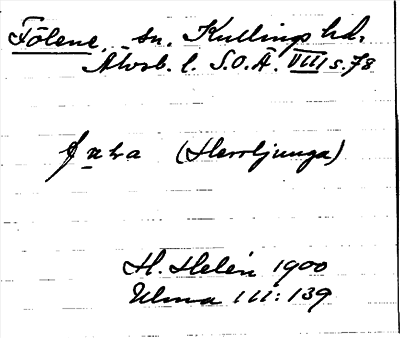 Fölene, sn. Kullings hd.
Älvsb. l. S.O.Ä. VIII s. 78
(Herrljunga)
H. Helén 1900
Ulma 111:139